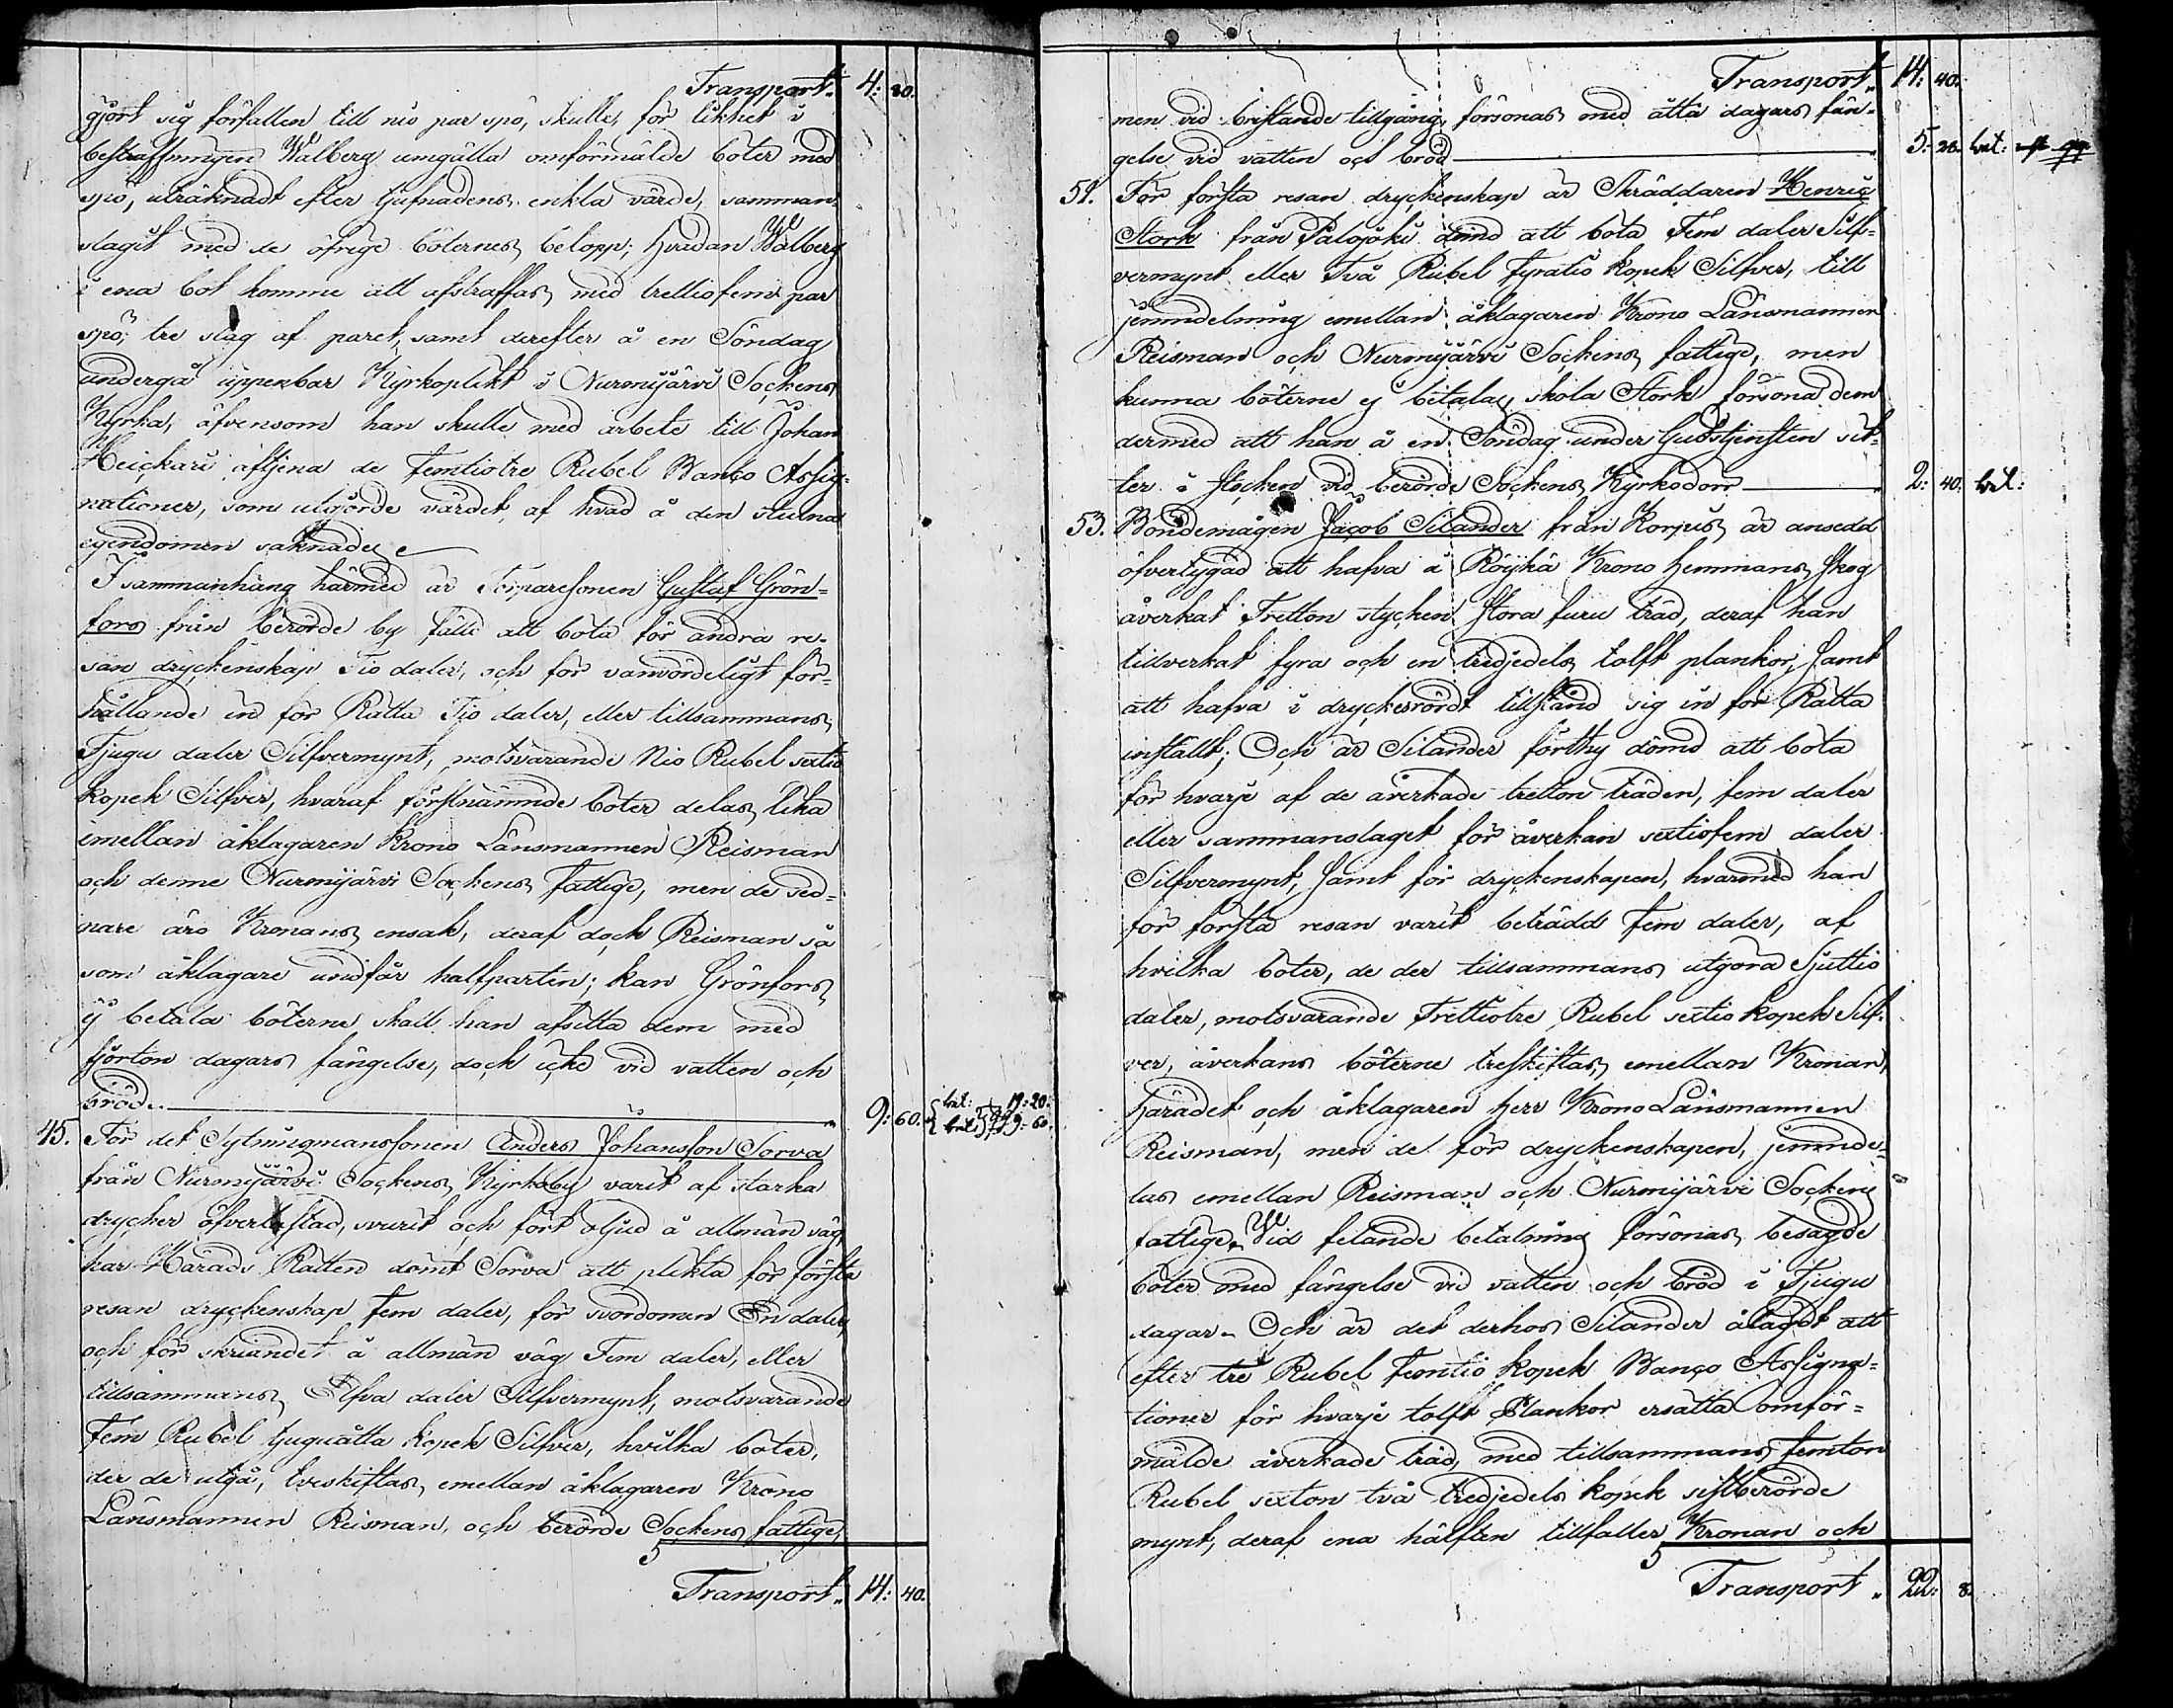 Transport. 4: 80.
gjort sig förfallen till nio par spö, skulle, för likhet i
bestraffningen Walberg umgälla omförmälde böter med
spö, uträknadt efter tjufnadens enkla värde, samman-
slagit med de öfrige böternes belopp; hvadan Walberg
i ena bot komme att afstraffas, med trettiofem par
spö, tre slag af paret, samt derefter å en Söndag
undergå uppenbar Kyrkoplikt i Nurmijärvi Sockens
Kyrka, äfvensom han skulle med arbete till Johan
Heickari aftjena de Femtiotre Rubel Banco Assig-
nationer, som utgörde värdet af hvad å den stulna
egendomen saknades.
I sammanhang härmed är Torparesonen Gustaf Grön-
fors från berörde by fälld att böta för andra re-
san dryckenskap Tio daler, och för vanvördeligt för-
hållande in för Rätta Tio daler, eller tillsammans
Tjugu daler Silfvermynt, motsvarande Nio Rubel sextio
kopek Silfver, hvaraf förstnämnde böter delas lika
emellan åklagaren Krono Länsmannen Reisman
och denne Nurmijärvi Sockens fattige, men de sed-
nare äro Kronans ensak, deraf dock Reisman så
som åklagare undfår halfparten; kan Grönfors
ej betala böterne, skall han afsitta dem med
fjorton dagars fängelse, dock icke vid vatten och
bröd. 9: 60. bet: 19: 20.
bet: 9: 60.
45. För det Sytningmanssonen Anders Johansson Sorva
från Nurmijärvi Sockens Kyrkoby varit af starka
drycker öfverlastad, svurit och fört oljud å allmän väg,
har Härads Rätten dömt Sorva att plikta för första
resan dryckenskap Fem daler, för svordomen En daler,
och för skriandet å allmän väg Fem daler, eller
tillsammans Elfva daler Silfvermynt, motsvarande
Fem Rubel tjuguåtta kopek Silfver, hvilka böter,
der de utgå, tveskiftas, emellan åklagaren Krono
Länsmannen Reisman, och berörde Sockens fattige,
Transport. 14: 40.
Transport. 14: 40.
men vid bristande tillgång, försonas med åtta dagars fän-
gelse vid vatten och bröd 5: 28. bet:
51. För första resan dryckenskap är Skräddaren Henric
Stork från Palojoki dömd att böta Fem daler Silf-
vermynt eller Två Rubel Fyratio kopek Silfver, till
jemndelning emellan åklagaren Krono Länsmannen
Reisman och Nurmijärvi Sockens fattige, men
kunna böterne ej betalas, skola Stork försona dem
dermed att han å en Söndag under Gudstjensten sit-
ter i stocken vid berörde Sockens Kyrkodörr 2: 40. bet:
53. Bondemågen Jacob Silander från Korpus är ansedd
öfvertygad att hafva å Röykä Krono hemmans skog
åverkat Tretton stycken stora furu träd, deraf han
tillverkat fyra och en tredjedels tolft plankor, samt
att hafva i dryckesrördt tillstånd sig in för Rätta
inställt; Och är Silander förthy dömd att böta
för hvarje af de åverkade tretton träden, fem daler
eller sammanslaget för åverkan sextiofem daler
Silfvermynt, samt för dryckenskapen, hvarmed han
för första resan varit beträdd Fem daler, af
hvilka böter, de der tillsammans utgöra Sjuttio
daler, motsvarande Trettiotre Rubel sextio kopek Silf-
ver, åverkans böterne treskiftas, emellan Kronan,
häradet och åklagaren herr Krono Länsmannen
Reisman, men de för dryckenskapen, jemnde-
las emellan Reisman och Nurmijärvi Sockens
fattige. Vid felande betalning försonas, besagde
böter med fängelse vid vatten och bröd i Tjugu
dagar. Och är det derhos Silander ålagdt att
efter tre Rubel Femtio kopek Banco Assigna-
tioner för hvarje tolft Plankor ersätta omför-
mälde åverkade träd, med tillsammans femton
Rubel sexton två tredjedels kopek sistberörde
mynt, deraf ena hälften tillfaller Kronan och
Transport. 22: 8.